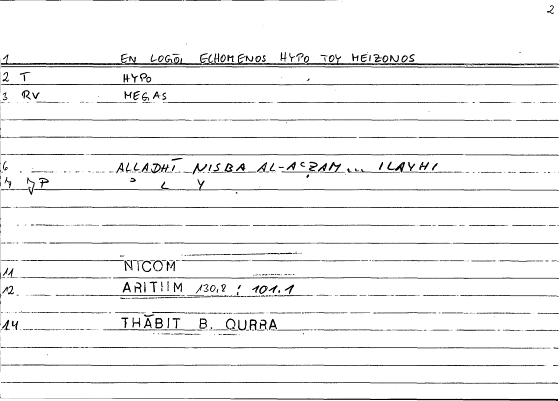 2
1 EN LOGŌI ECHOMENOS HYPO TOY MEIZONOS
2 T HYPO
3 RV MEGAS
6 ALLADHĪ NISBA AL-AʿẒAM... ILAYHI
P L Y
11 NICOM
12 ARITHM 130,8 : 101.1
14 THĀBIT B. QURRA